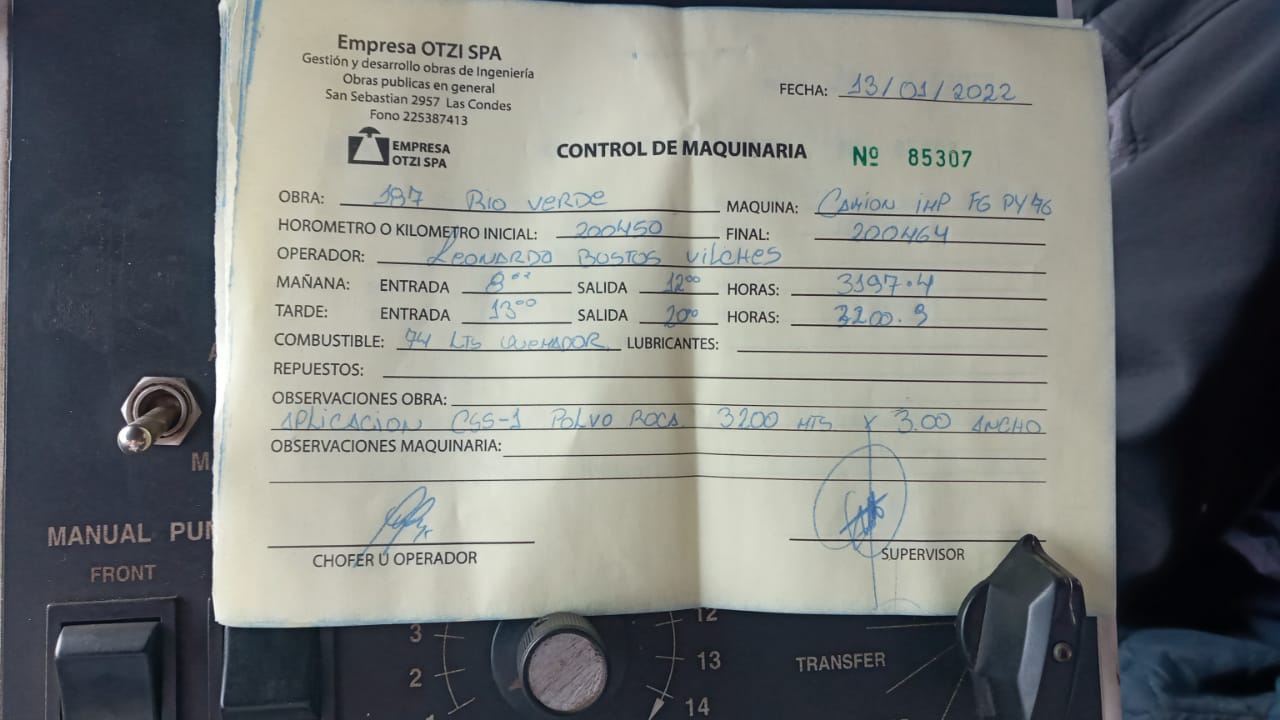 Empresa OTZI SPA
Gestión y desarrollo obras de Ingeniería
Obras publicas en general
San Sebastian 2957 Las Condes
Fono 225387413
EMPRESA
OTZI SPA
FECHA: 13/01/2022
CONTROL DE MAQUINARIA Nº 85307
OBRA: 187 RIO VERDE MAQUINA: CAMION IMP FG PY 76
HOROMETRO O KILOMETRO INICIAL: 200450 FINAL: 200464
OPERADOR: LEONARDO BUSTOS VILCHES
MAÑANA: ENTRADA 8⁰⁰ SALIDA 12⁰⁰ HORAS: 3197.4
TARDE: ENTRADA 13⁰⁰ SALIDA 20⁰⁰ HORAS: 3200.9
COMBUSTIBLE: 74 LTS QUEMADOR LUBRICANTES:
REPUESTOS:
OBSERVACIONES OBRA:
APLICACION CSS-1 POLVO ROCA 3200 MTS X 3.00 ANCHO
OBSERVACIONES MAQUINARIA:
CHOFER U OPERADOR
SUPERVISOR
MANUAL
FRONT
3
2
12
13
14
TRANSFER